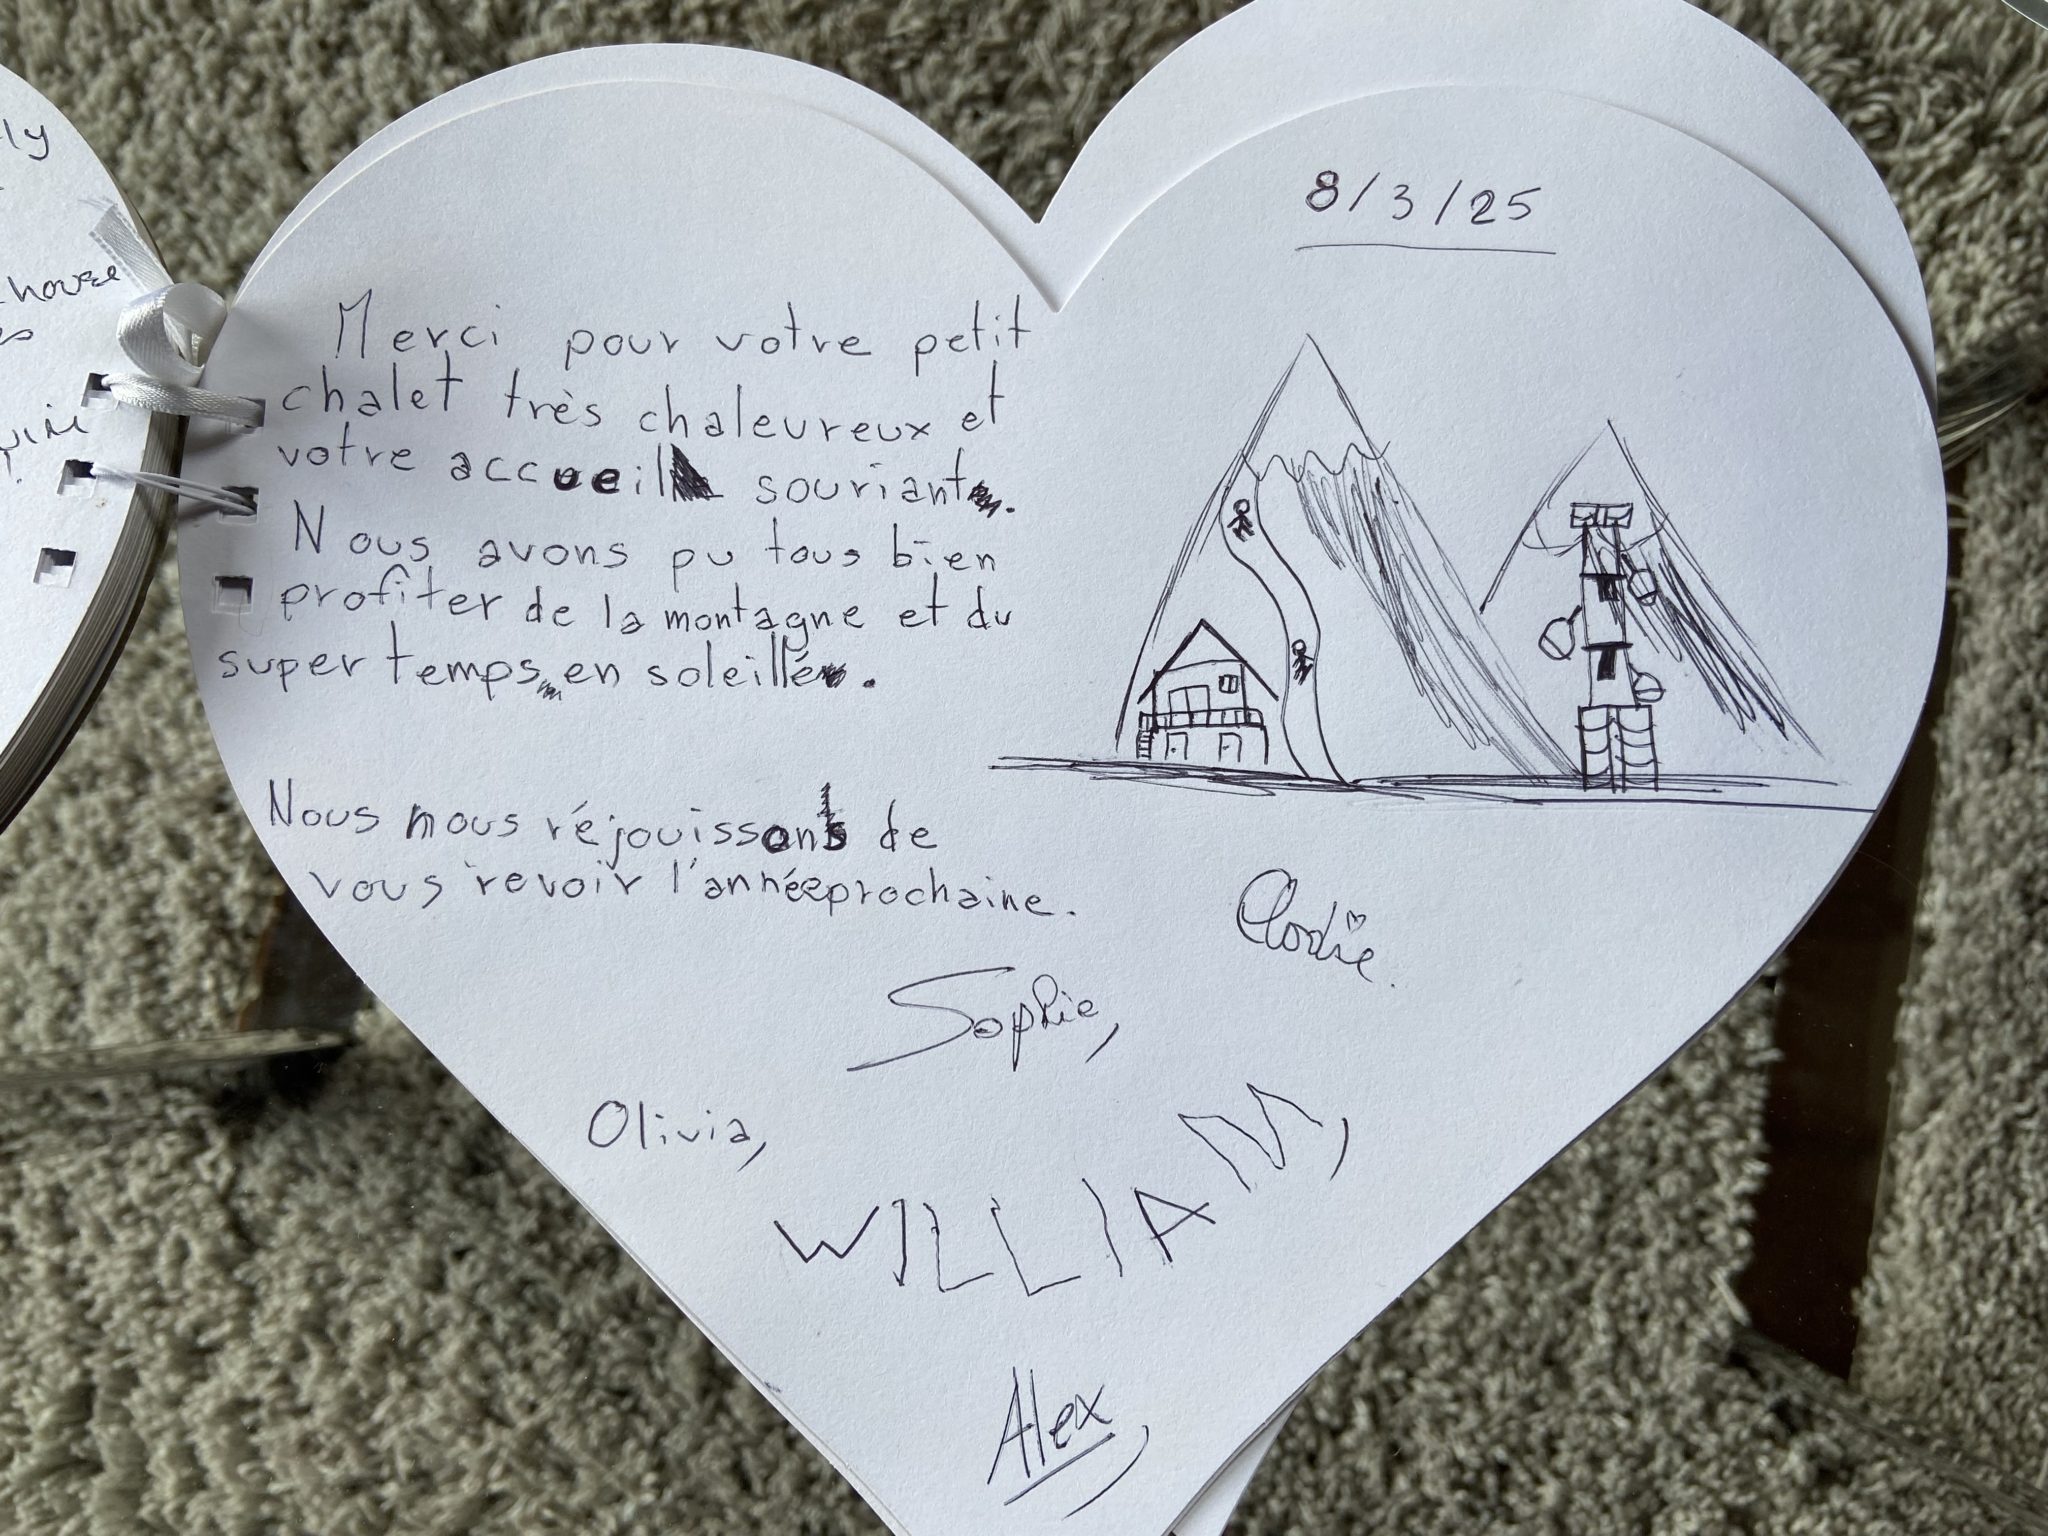 ly
house
8/3/25
Merci pour votre petit
chalet très chaleureux et
votre accueil souriant.
Nous avons pu tous bien
profiter de la montagne et du
super temps en soleillé.
Nous nous réjouissons de
vous revoir l'année prochaine.
Elodie.
Sophie,
Olivia,
WILLIAM,
Alex,